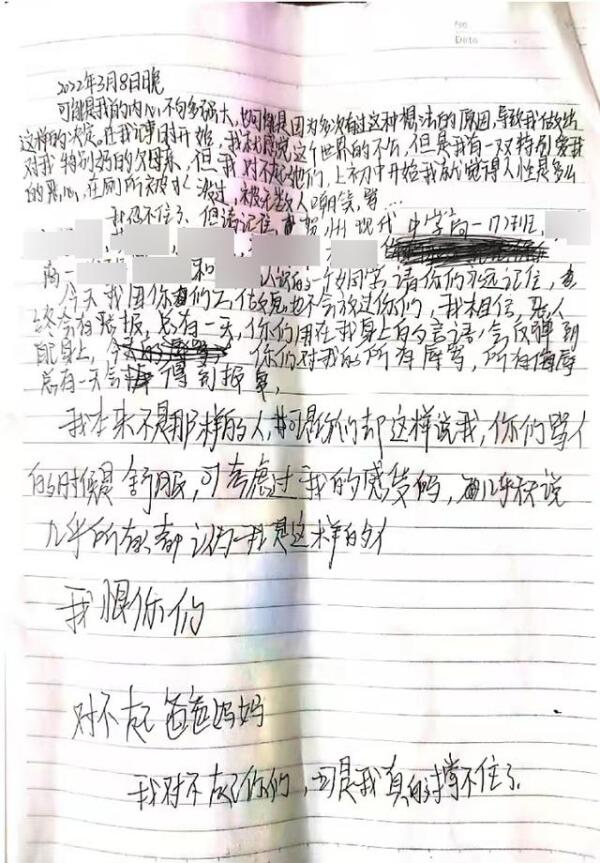 No
Date
2022年3月8日晚
可能是我的内心不够强大,也可能是因为多次有过这种想法的原因,导致我做出
这样的决定。在我记事时开始,我就感觉这个世界的不公,但是我有一双特别爱我
对我特别好的父母亲,但我对不起他们,上初中开始我就觉得人性是多么
的恶心,在厕所被人泼过,被无数人嘲笑,骂…
我忍不住了,但请记住,贺州现代中学高一17班,
高一 和 认识的一个女同学,请你们永远记住,
今天我因你们而做鬼也不会放过你们,我相信,恶人
终会有恶报,总有一天,你们用在我身上的言语,会反弹到
自己身上,你们对我的所有辱骂,所有侮辱
总有一天会得到报复
我本来不是那样的人,可是你们却这样说我,你们骂人
的时候是舒服,可考虑过我的感受吗,说
几乎所有都认为我是这样的人
我恨你们
对不起爸爸妈妈
我对不起你们,可是我真的撑不住了